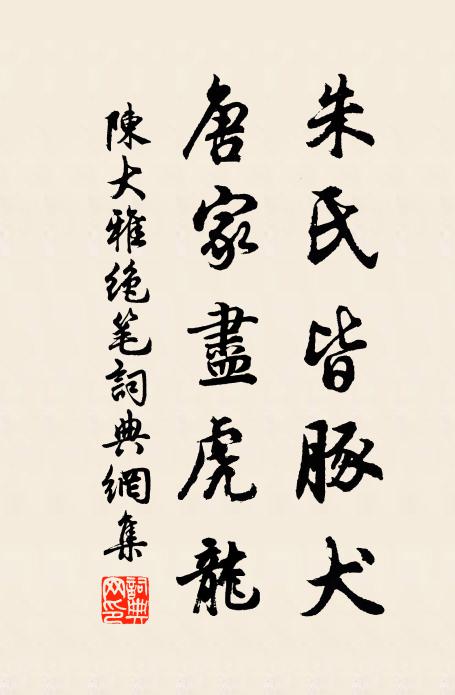 朱氏皆豚犬
唐家盡虎龍
陳大雅绝笔詞典網集
詞典